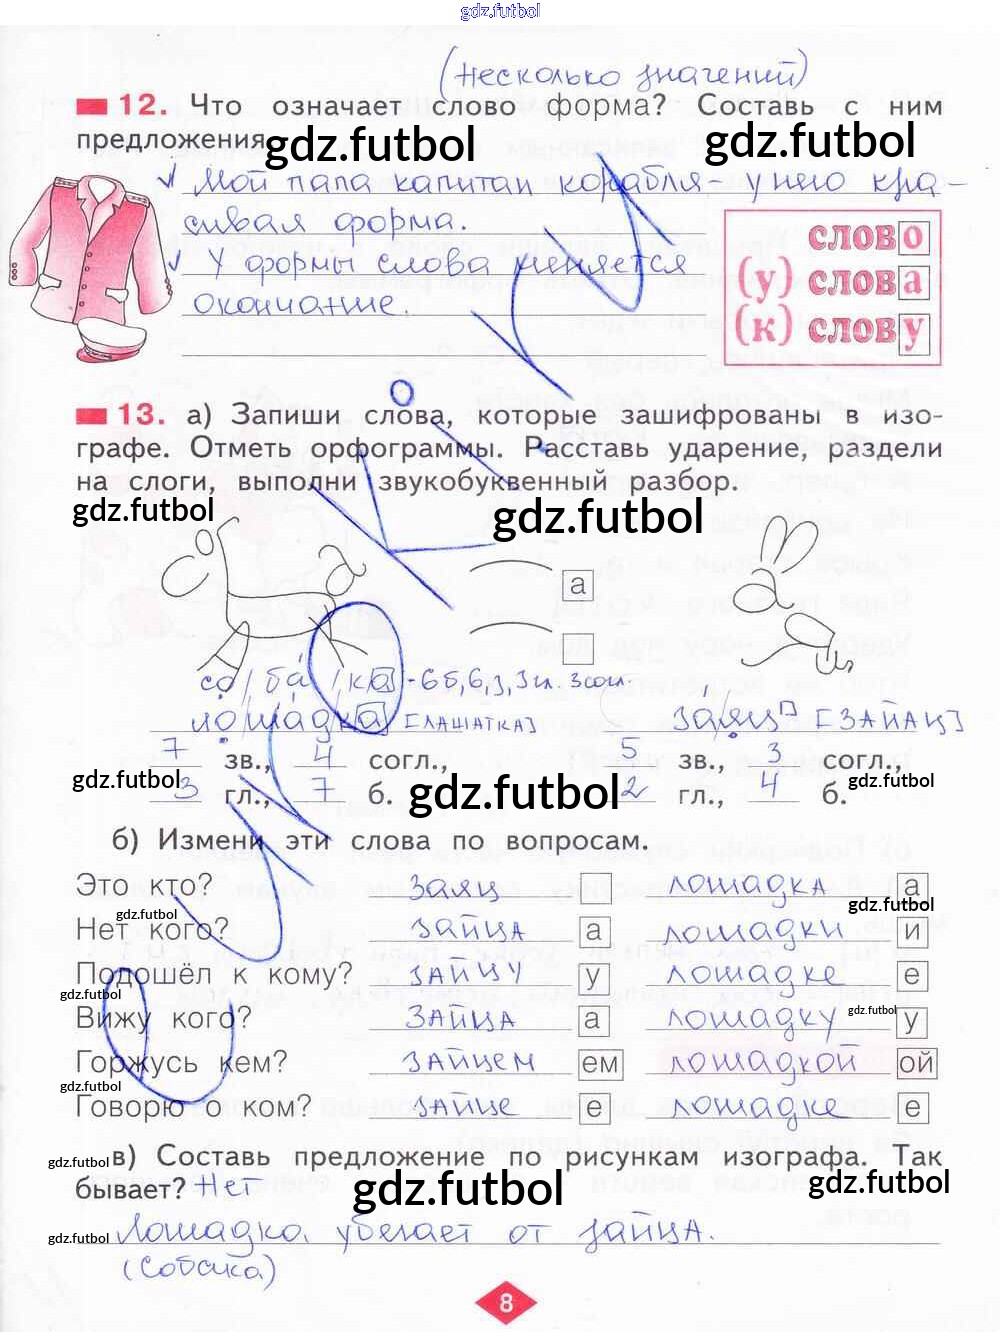 gdz.futbol
(несколько значений)
12. Что означает слово форма? Составь с ним
предложения.
gdz.futbol
gdz.futbol
Мой папа капитан корабля у него кра-
сивая форма.
У формы слова меняется
окончание.
слово
(у) слова
(к) слову
13. а) Запиши слова, которые зашифрованы в изо-
графе. Отметь орфограммы. Расставь ударение, раздели
на слоги, выполни звукобуквенный разбор.
gdz.futbol
gdz.futbol
а
со/ба/ка - 6б, 6з, 3гл. 3согл.
лошадка [лашатка]
заяц [зайац]
7 зв., 4 согл., 5 зв., 3 согл.,
3 гл., 7 б. 2 гл., 4 б.
gdz.futbol
gdz.futbol
gdz.futbol
б) Измени эти слова по вопросам.
Это кто? заяц лошадка а
gdz.futbol
gdz.futbol
Нет кого? зайца а лошадки и
Подошёл к кому? зайцу у лошадке е
gdz.futbol
gdz.futbol
Вижу кого? зайца а лошадку у
Горжусь кем? зайцем ем лошадкой ой
gdz.futbol
Говорю о ком? зайце е лошадке е
в) Составь предложение по рисункам изографа. Так
бывает? Нет
gdz.futbol
gdz.futbol
gdz.futbol
Лошадка убегает от зайца.
gdz.futbol
(Собака)
8